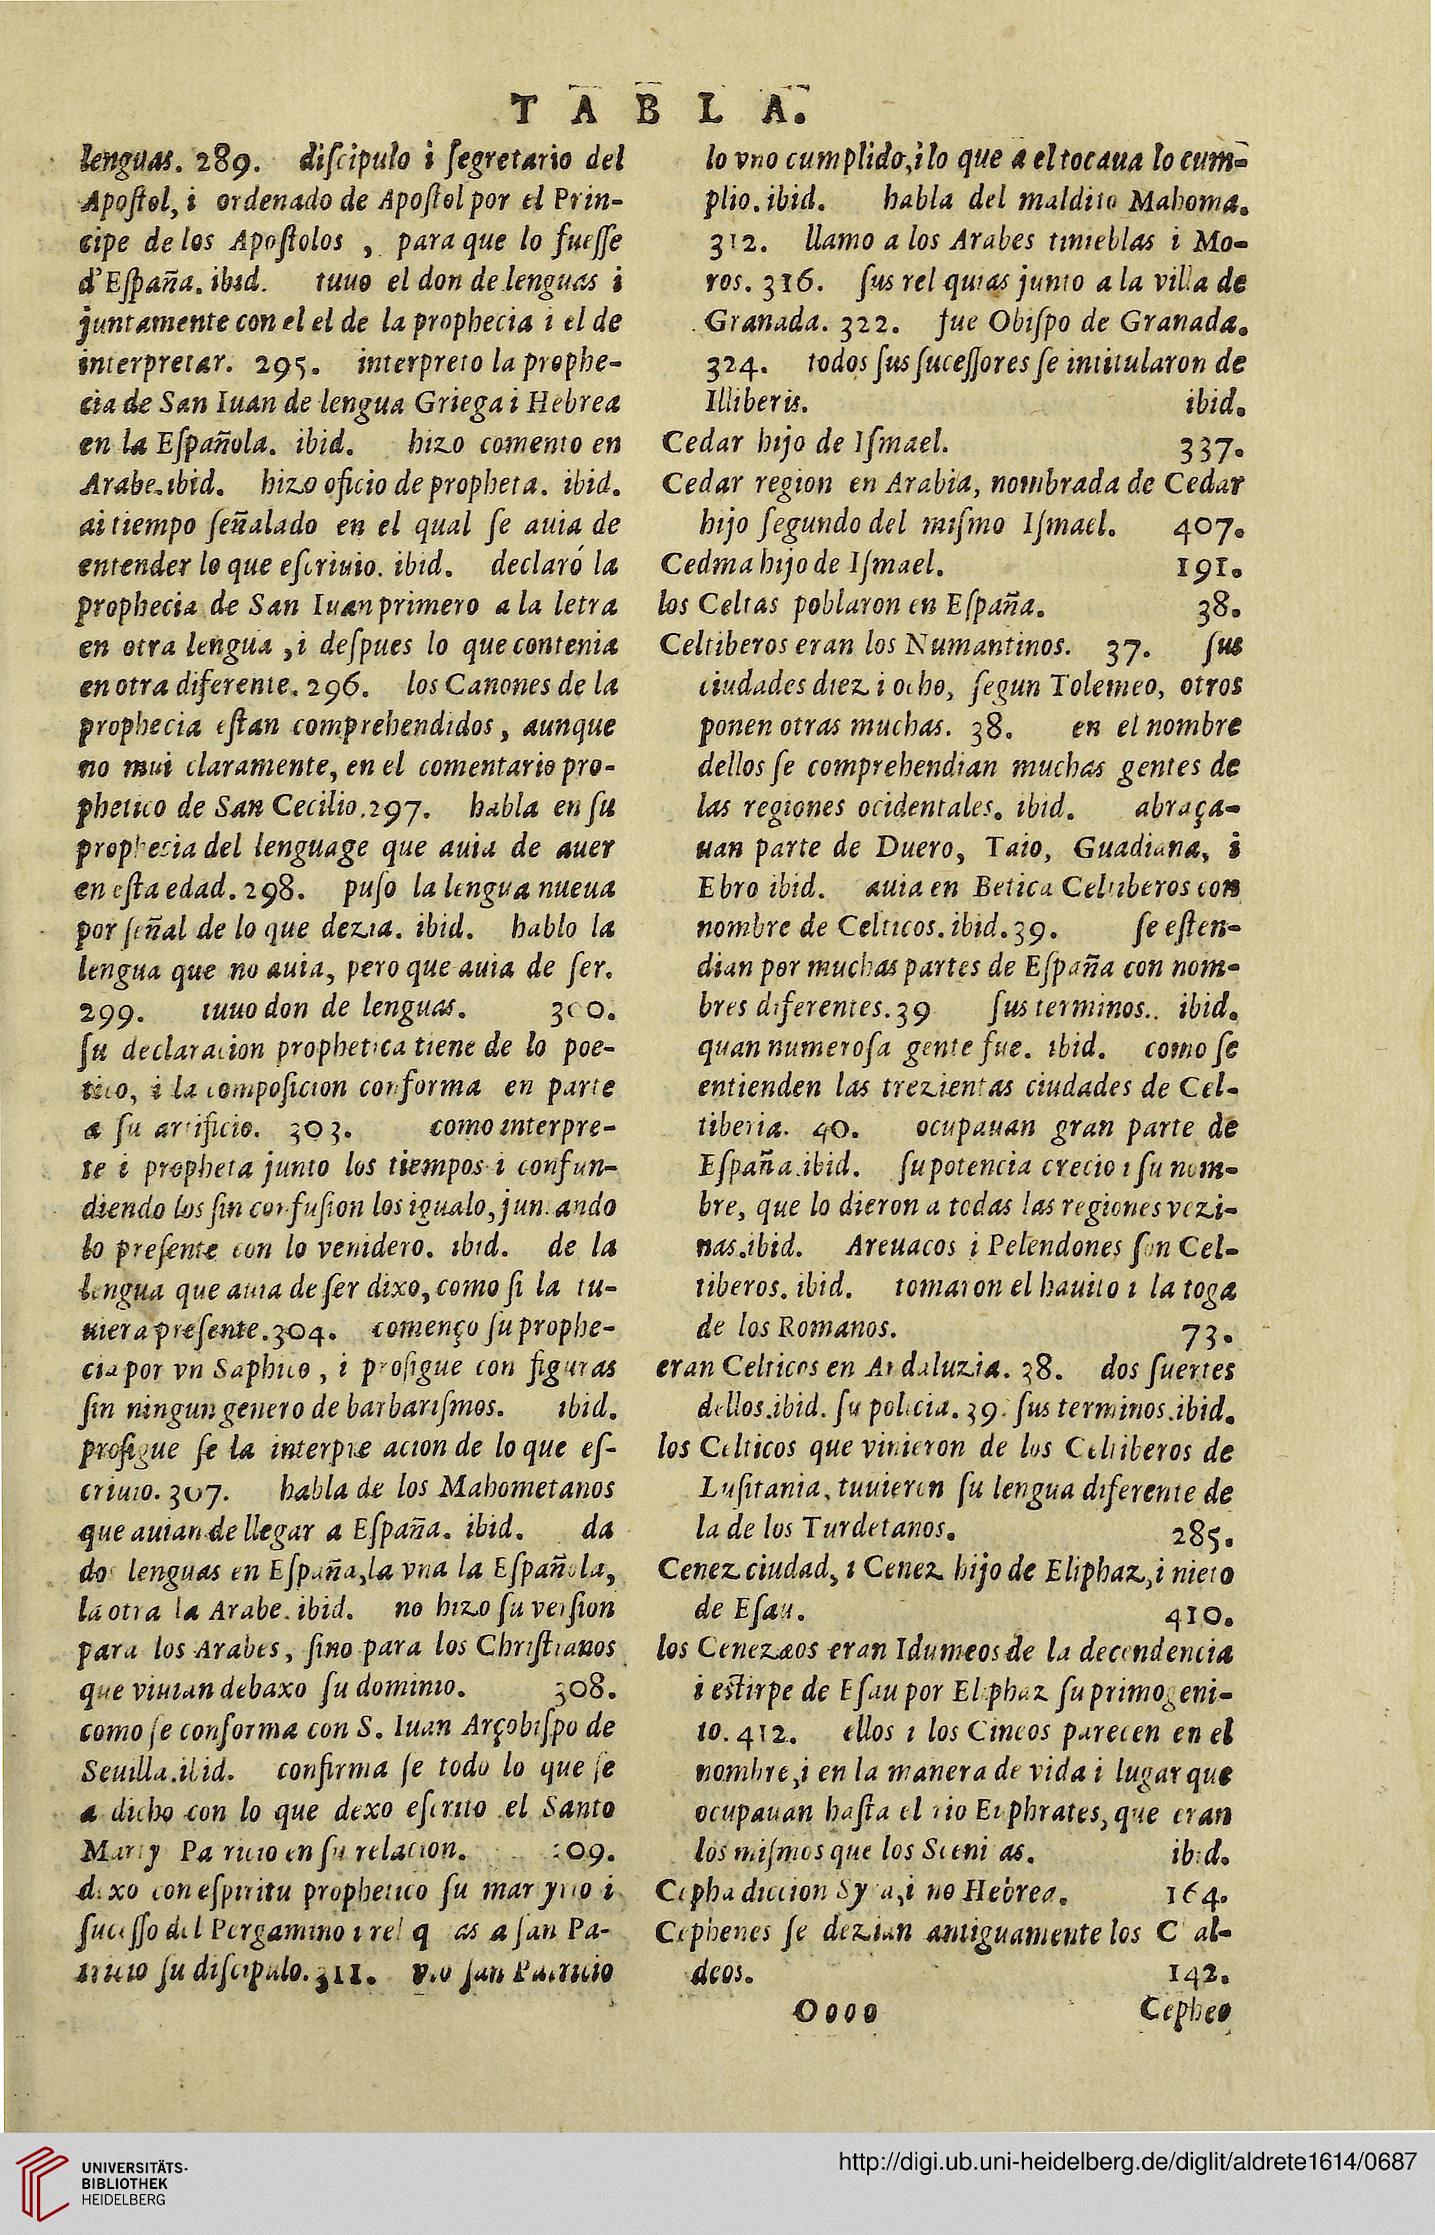 TABLA.
lenguas. 289. diſcipulo i ſegretario del
Apoſtol, i ordenado de Apoſtol por el Prin-
cipe de los Apoſtolos , para que lo fueſſe
d'Eſpaña. ibid. tuuo el don de lenguas i
juntamente con el el de la prophecia i el de
interpretar. 295. interpreto la prophe-
cia de San Iuan de lengua Griega i Hebrea
en la Eſpañola. ibid. hizo comento en
Arabe.ibid. hizo oficio de propheta. ibid.
ai tiempo ſeñalado en el qual ſe auia de
entender lo que eſcriuio. ibid. declaró la
prophecia de San Iuan primero a la letra
en otra lengua ,i deſpues lo que contenia
en otra diferente. 296. los Canones de la
prophecia eſtan comprehendidos , aunque
no mui claramente, en el comentario pro-
phetico de San Cecilio.297. habla en ſu
prophecia del lenguage que auia de auer
en eſta edad. 298. puſo la lengua nueua
por ſeñal de lo que dezia. ibid. hablo la
lengua que no auia, pero que auia de ſer.
299. tuuo don de lenguas. 300.
ſu declaracion prophetica tiene de lo poe-
tico, i la compoſicion conforma en parte
a ſu artificio. 303. como interpre-
te i propheta junto los tiempos i confun-
diendo los ſin confuſion los igualo, juntando
lo preſente con lo venidero. ibid. de la
lengua que auia de ſer dixo, como ſi la tu-
uiera preſente.304. començo ſu prophe-
cia por vn Saphico , i proſigue con figuras
ſin ningun genero de barbariſmos. ibid.
proſigue ſe la interpre acion de lo que eſ-
criuio. 307. habla de los Mahometanos
que auian de llegar a Eſpaña. ibid. da
dos lenguas en Eſpaña,la vna la Eſpañola,
la otra la Arabe. ibid. no hizo ſu verſion
para los Arabes, ſino para los Chriſtianos
que viuian debaxo ſu dominio. 308.
como ſe conforma con S. Iuan Arçobiſpo de
Seuilla.ibid. confirma ſe todo lo que ſe
a dicho con lo que dexo eſcrito el Santo
Martyr Patricio en ſu relacion. 309.
dixo con eſpiritu prophetico ſu martyrio i
ſuceſſo del Pergamino i rel q as a ſan Pa-
tricio ſu diſcipulo.311. vio ſan Patricio
lo vno cumplido,i lo que a el tocaua lo cum-
plio. ibid. habla del maldito Mahoma.
312. llamo a los Arabes tinieblas i Mo-
ros. 316. ſus rel quias junto a la villa de
Granada. 322. fue Obiſpo de Granada.
324. todos ſus ſuceſſores ſe intitularon de
Illiberis. ibid.
Cedar hijo de Iſmael. 337.
Cedar region en Arabia, nombrada de Cedar
hijo ſegundo del miſmo Iſmael. 407.
Cedma hijo de Iſmael. 191.
los Celtas poblaron en Eſpaña. 38.
Celtiberos eran los Numantinos. 37. ſus
ciudades diez i ocho, ſegun Tolemeo, otros
ponen otras muchas. 38. en el nombre
dellos ſe comprehendian muchas gentes de
las regiones ocidentales. ibid. abraça-
uan parte de Duero, Taio, Guadiana, i
Ebro ibid. auia en Betica Celtiberos con
nombre de Celticos. ibid.39. ſe eſten-
dian por muchas partes de Eſpaña con nom-
bres diferentes.39 ſus terminos.. ibid.
quan numeroſa gente fue. ibid. como ſe
entienden las trezientas ciudades de Cel-
tiberia. 40. ocupauan gran parte de
Eſpaña.ibid. ſu potencia crecio i ſu nom-
bre, que lo dieron a todas las regiones vezi-
nas.ibid. Areuacos i Pelendones ſon Cel-
tiberos. ibid. tomaron el hauito i la toga
de los Romanos. 73.
eran Celticos en Andaluzia. 38. dos ſuertes
dellos.ibid. ſu policia. 39. ſus terminos.ibid.
los Celticos que vinieron de los Celtiberos de
Luſitania, tuuieron ſu lengua diferente de
la de los Turdetanos. 285.
Cenez ciudad, i Cenez hijo de Eliphaz,i nieto
de Eſau. 410.
los Cenezæos eran Idumeos de la decendencia
i eſtirpe de Eſau por Eliphaz ſu primogeni-
to. 412. ellos i los Cineos parecen en el
nombre,i en la manera de vida i lugar que
ocupauan haſta el rio Euphrates, que eran
los miſmos que los Scenitas. ibid.
Cepha diccion Syra,i no Hebrea. 164.
Cephenes ſe dezian antiguamente los C al-
deos. 142.
Oooo Cepheo
UNIVERSITÄTS-
BIBLIOTHEK
HEIDELBERG
http://digi.ub.uni-heidelberg.de/diglit/aldrete1614/0687